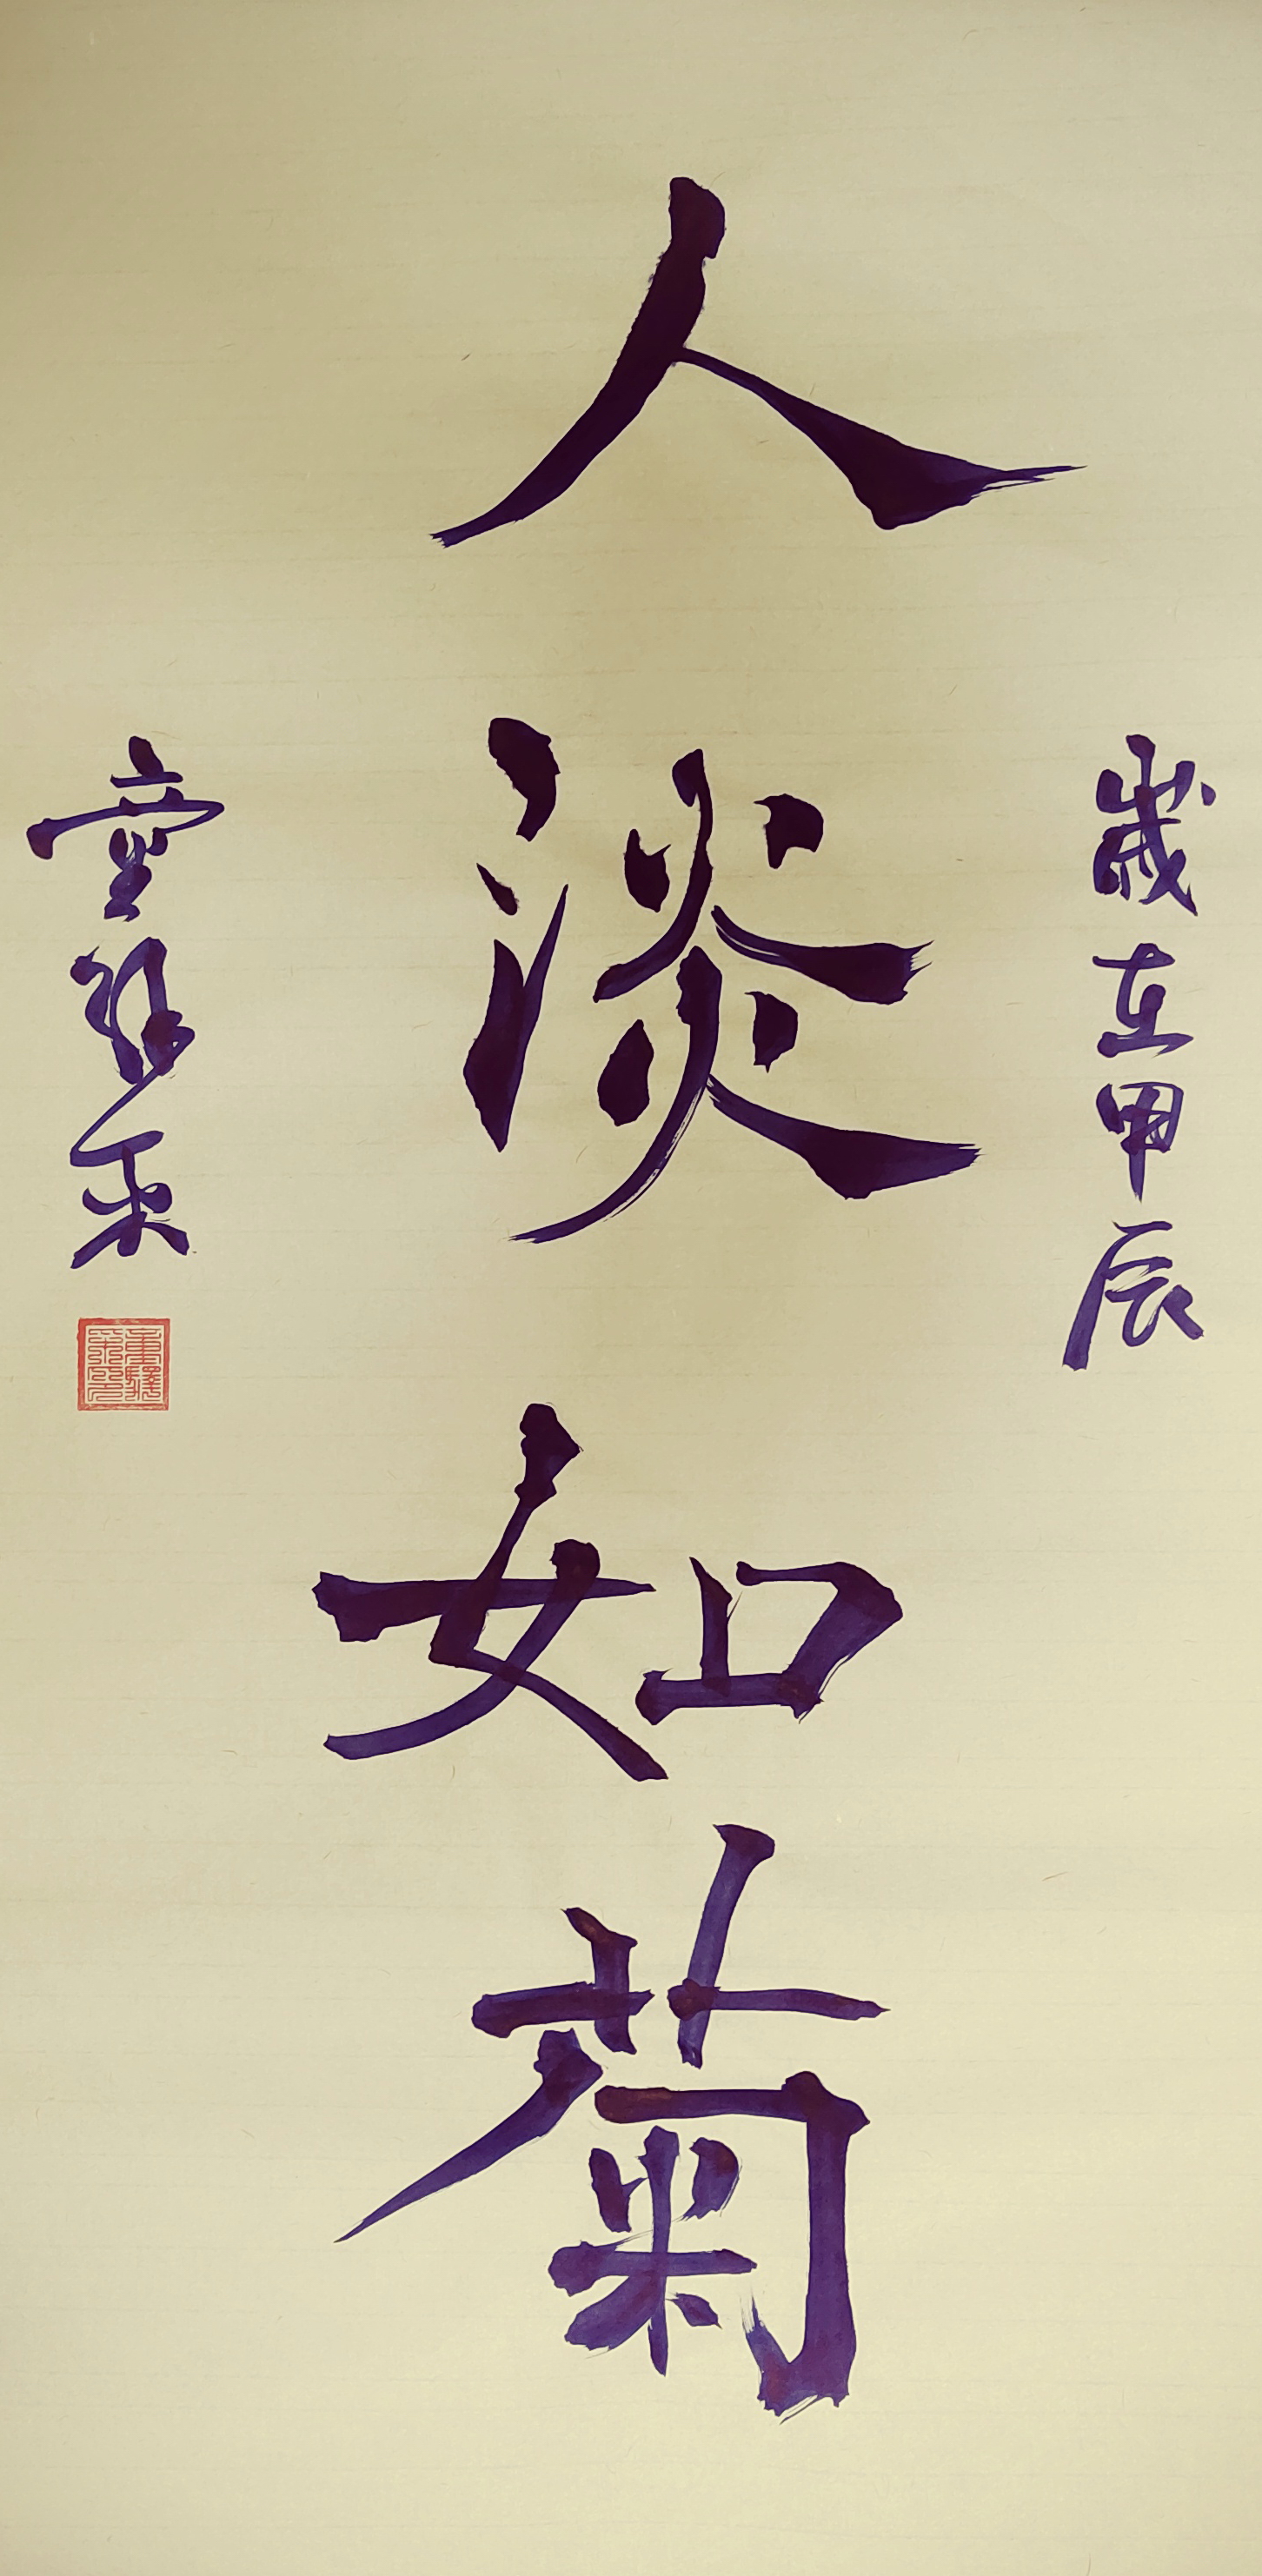 歲在甲辰
人淡如菊
童